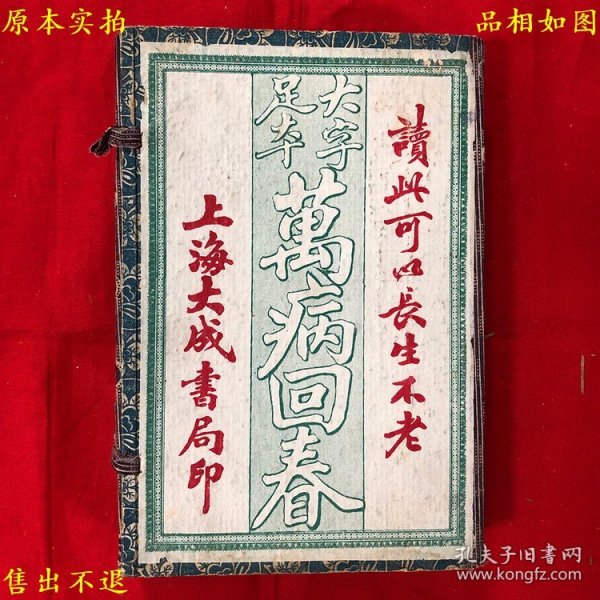 原本实拍
品相如图
讀此可以長生不老
大字
足本
萬病回春
上海大成書局印
售出不退
孔夫子旧书网
www.kongfz.com